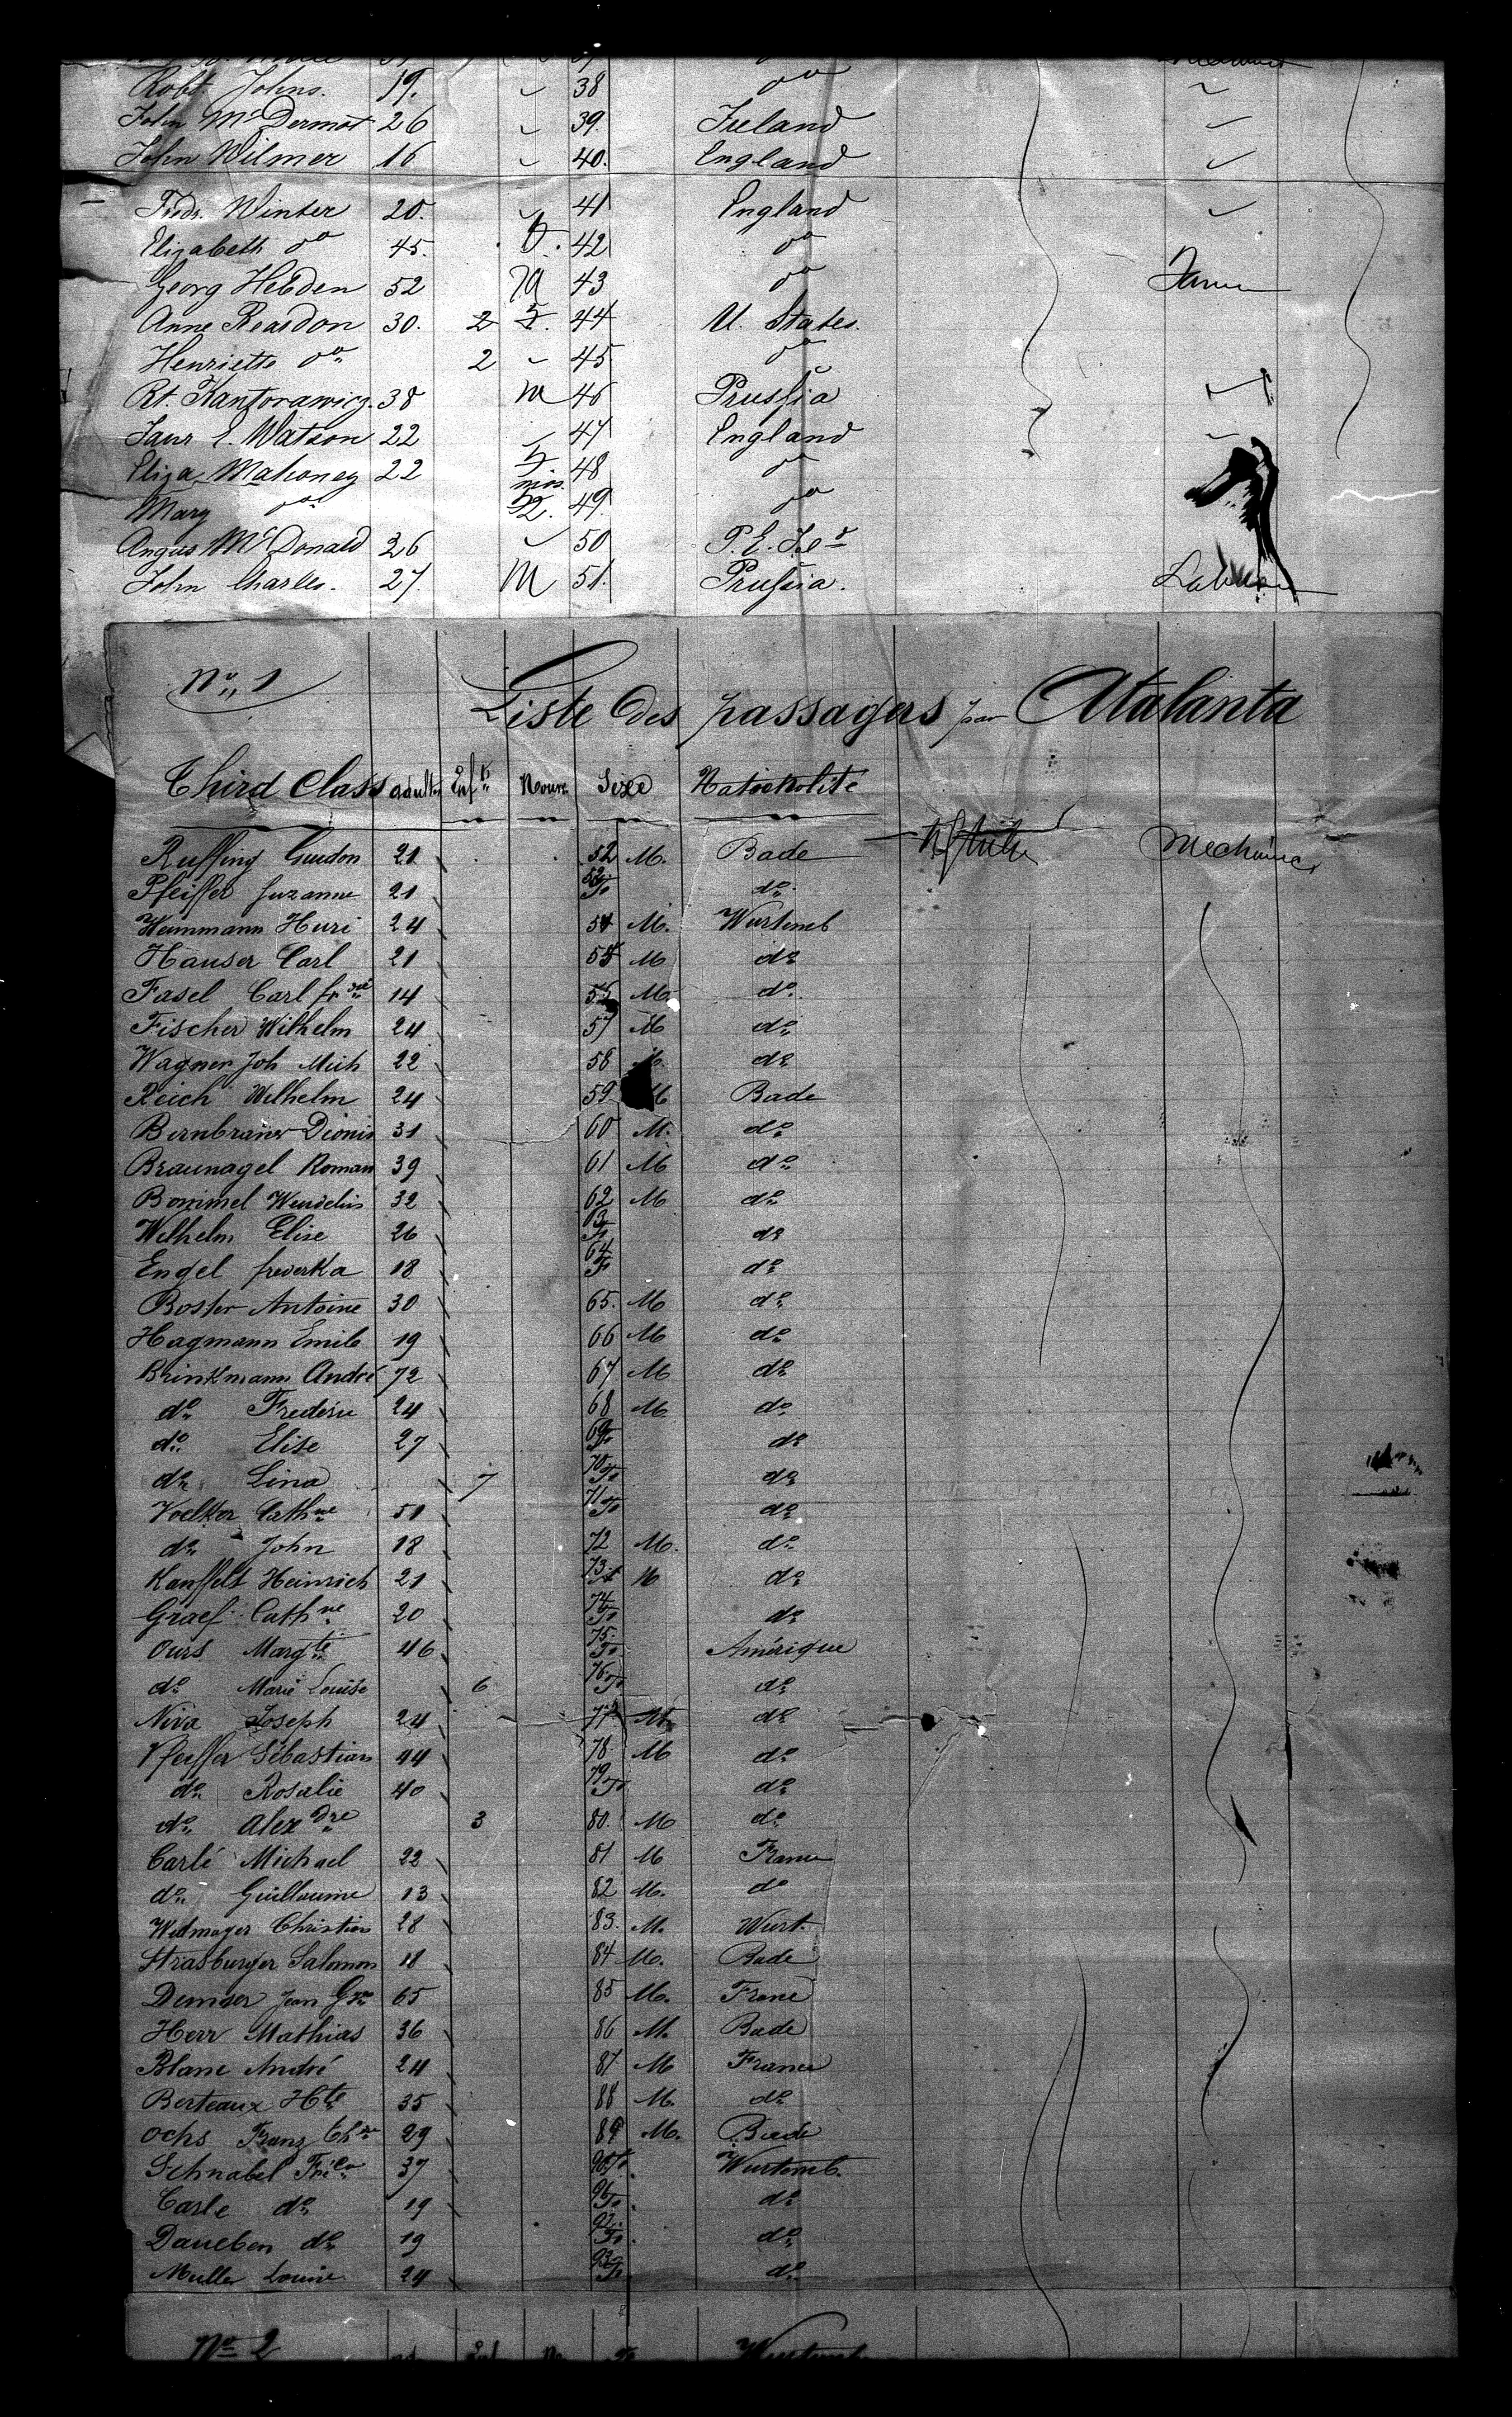 Robt. Johns. 19. 38 do
John McDermot 26 39. Ireland
John Wilmer 16 40. England
Fredr. Winter 20. 41 England
Elizabeth do 45. F. 42 do
Georg Hebden 52 M 43 do
Anne Reardon 30. 2 F. 44 U. States.
Henriette do 2 45 do
Rt. Kantorawicz. 38 M 46 Prussia
22 47 England
Eliza Mahoney 22 F 48 do
Mary do mos. 49. do
Angus McDonald 26 50 P. E. Isd
John Charles. 27. M 51. Prussia. Labourer
No. 1
Liste des passagers par Atalanta
Third Class adultes Enfts Nourr. Sexe Nationalité
Ruffing Guidon 21 52 M. Bade Mechanic
Pfeiffer Suzanne 21 53 F do
Hemmann Henri 24 54 M. Wurtemb
Hauser Carl 21 55 M do
Fasel Carl 14 56 M. do
Fischer Wilhelm 24 57 M do
Wagner Joh Mich 22 58 M. do
Reich Wilhelm 24 59 M Bade
Dionis 31 60 M. do
Braunagel Roman 39 61 M do
Bommel Wendelin 32 62 M do
Wilhelm Elise 26 63 F do
Engel frederka 18 64 F do
Antoine 30 65. M do
Hagmann Emile 19 66 M do
Brinkmann André 72 67 M do
do Frederic 24 68 M do
do Elise 27 69 F do
do Lina 7 70 F do
Voelker Cathne 51 71 F do
do John 18 72 M. do
Kauffelt Heinrich 21 73 M do
Graef Cathne 20 74 F do
Ours Margte 46 75. F. Amérique
do Marie Louise 6 76. F do
Niva Joseph 24 77 M. do
Pfeiffer Sébastian 44 78. M do
do Rosalie 40 79 F do
do Alexdre 3 80. M do
Carlé Michael 22 81 M France
do Guillaume 13 82 M. do
Widmayer Christian 28 83. M. Wurt.
Strasburger Salomon 18 84 M. Bade
Jean 65 85 M. France
Herr Mathias 36 86 M. Bade
Blanc André 24 87 M France
Berteaux Hte 35 88 M. do
Ochs Franz 29 89 M. Bade
Schnabel 37 90 F Wurtemb.
Carle do 19 91 F. do
do 19 92. F. do
Muller Louise 24 93 F do
No 2 Wurtemb